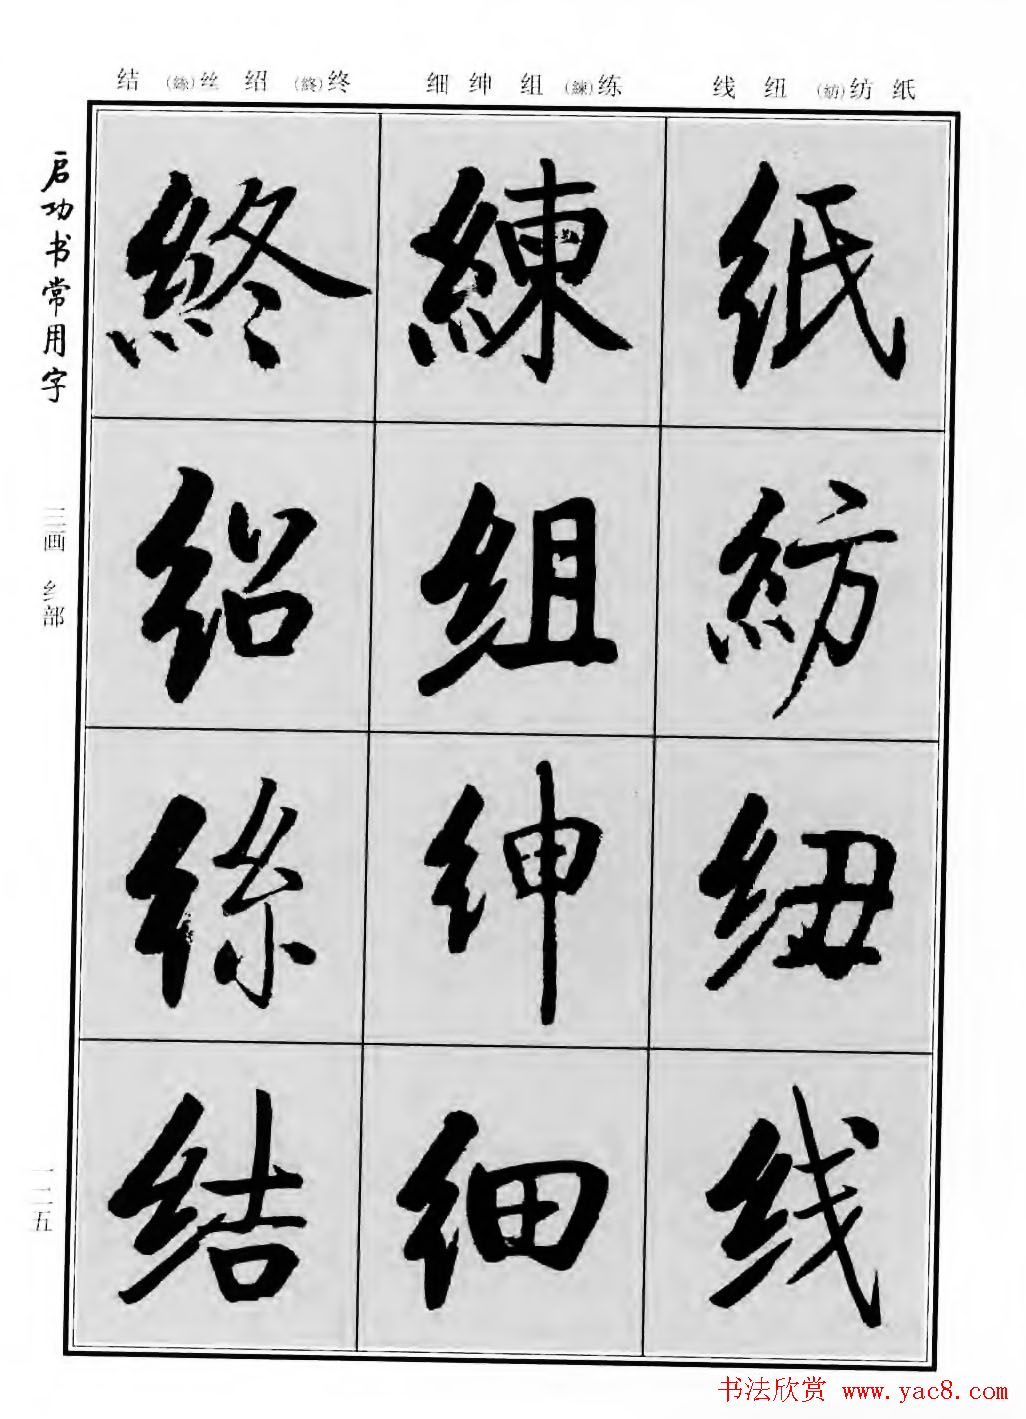 结 (絲)丝 绍 (終)终 细 绅 组 (練)练 线 纽 (紡)纺 纸
启功书常用字
三画 纟部
一二五
紙
紡
纽
线
練
组
绅
细
終
绍
絲
结
书法欣赏 www.yac8.com